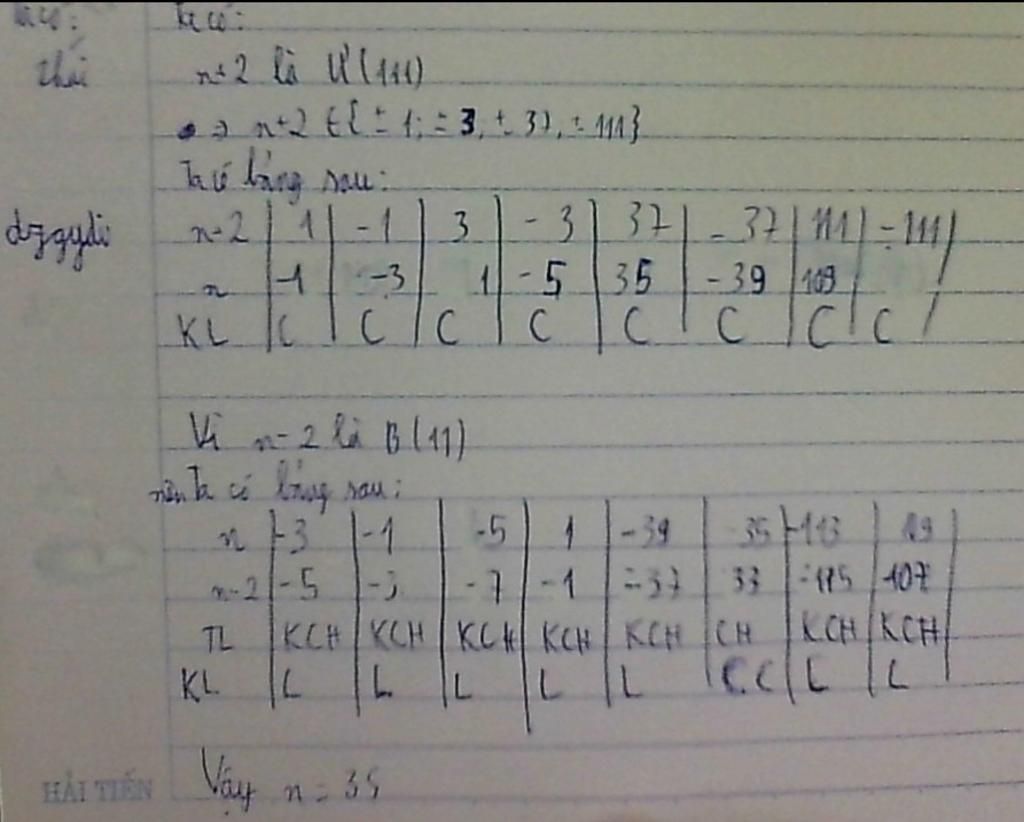 Ta có:
n+2 là Ư(111)
=> n+2 ∈ { ± 1; ± 3, ± 37, ± 111}
Ta có bảng sau:
n+2 | 1 | -1 | 3 | -3 | 37 | -37 | 111 | -111
n | -1 | -3 | 1 | -5 | 35 | -39 | 109
KL | C | C | C | C | C | C | C | C
Vì n-2 là B(11)
nên Ta có bảng sau:
n | -3 | -1 | -5 | 1 | -39 | 35 | -113 | 109
n-2 | -5 | -3 | -7 | -1 | -37 | 33 | -115 | 107
TL | KCH | KCH | KCH | KCH | KCH | CH | KCH | KCH
KL | L | L | L | L | L | C | L | L
Vậy n = 35
HẢI TIẾN